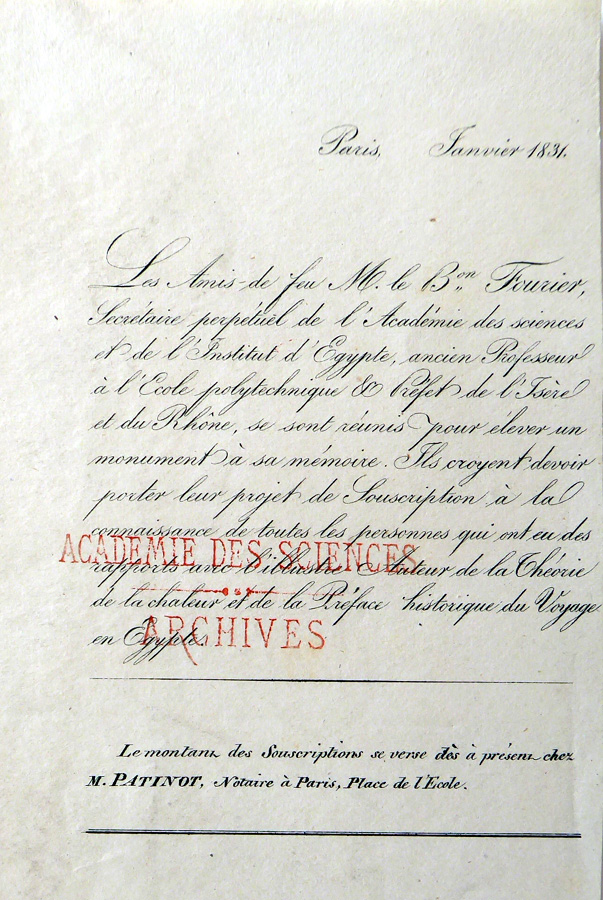 Paris, Janvier 1831.
Les Amis de feu M. le B.on Fourier,
Secrétaire perpétuel de l'Académie des sciences
et de l'Institut d'Egypte, ancien Professeur
à l'Ecole polytechnique & Préfet de l'Isère
et du Rhône, se sont réunis pour élever un
monument à sa mémoire. Ils croyent devoir
porter leur projet de Souscription à la
connaissance de toutes les personnes qui ont eu des
ACADEMIE DES SCIENCES
rapports avec l'illustre auteur de la Théorie
de la chaleur et de la Préface historique du Voyage
ARCHIVES
en Egypte.
Le montant des Souscriptions se verse dès à présent chez
M. PATINOT, Notaire à Paris, Place de l'Ecole.